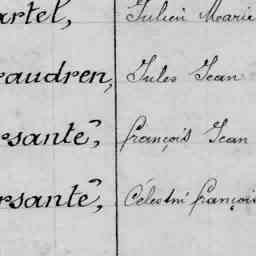 artel, Julien Marie
audren, Jules Jean
rsanté, françois Jean
rsanté, Célestin françois